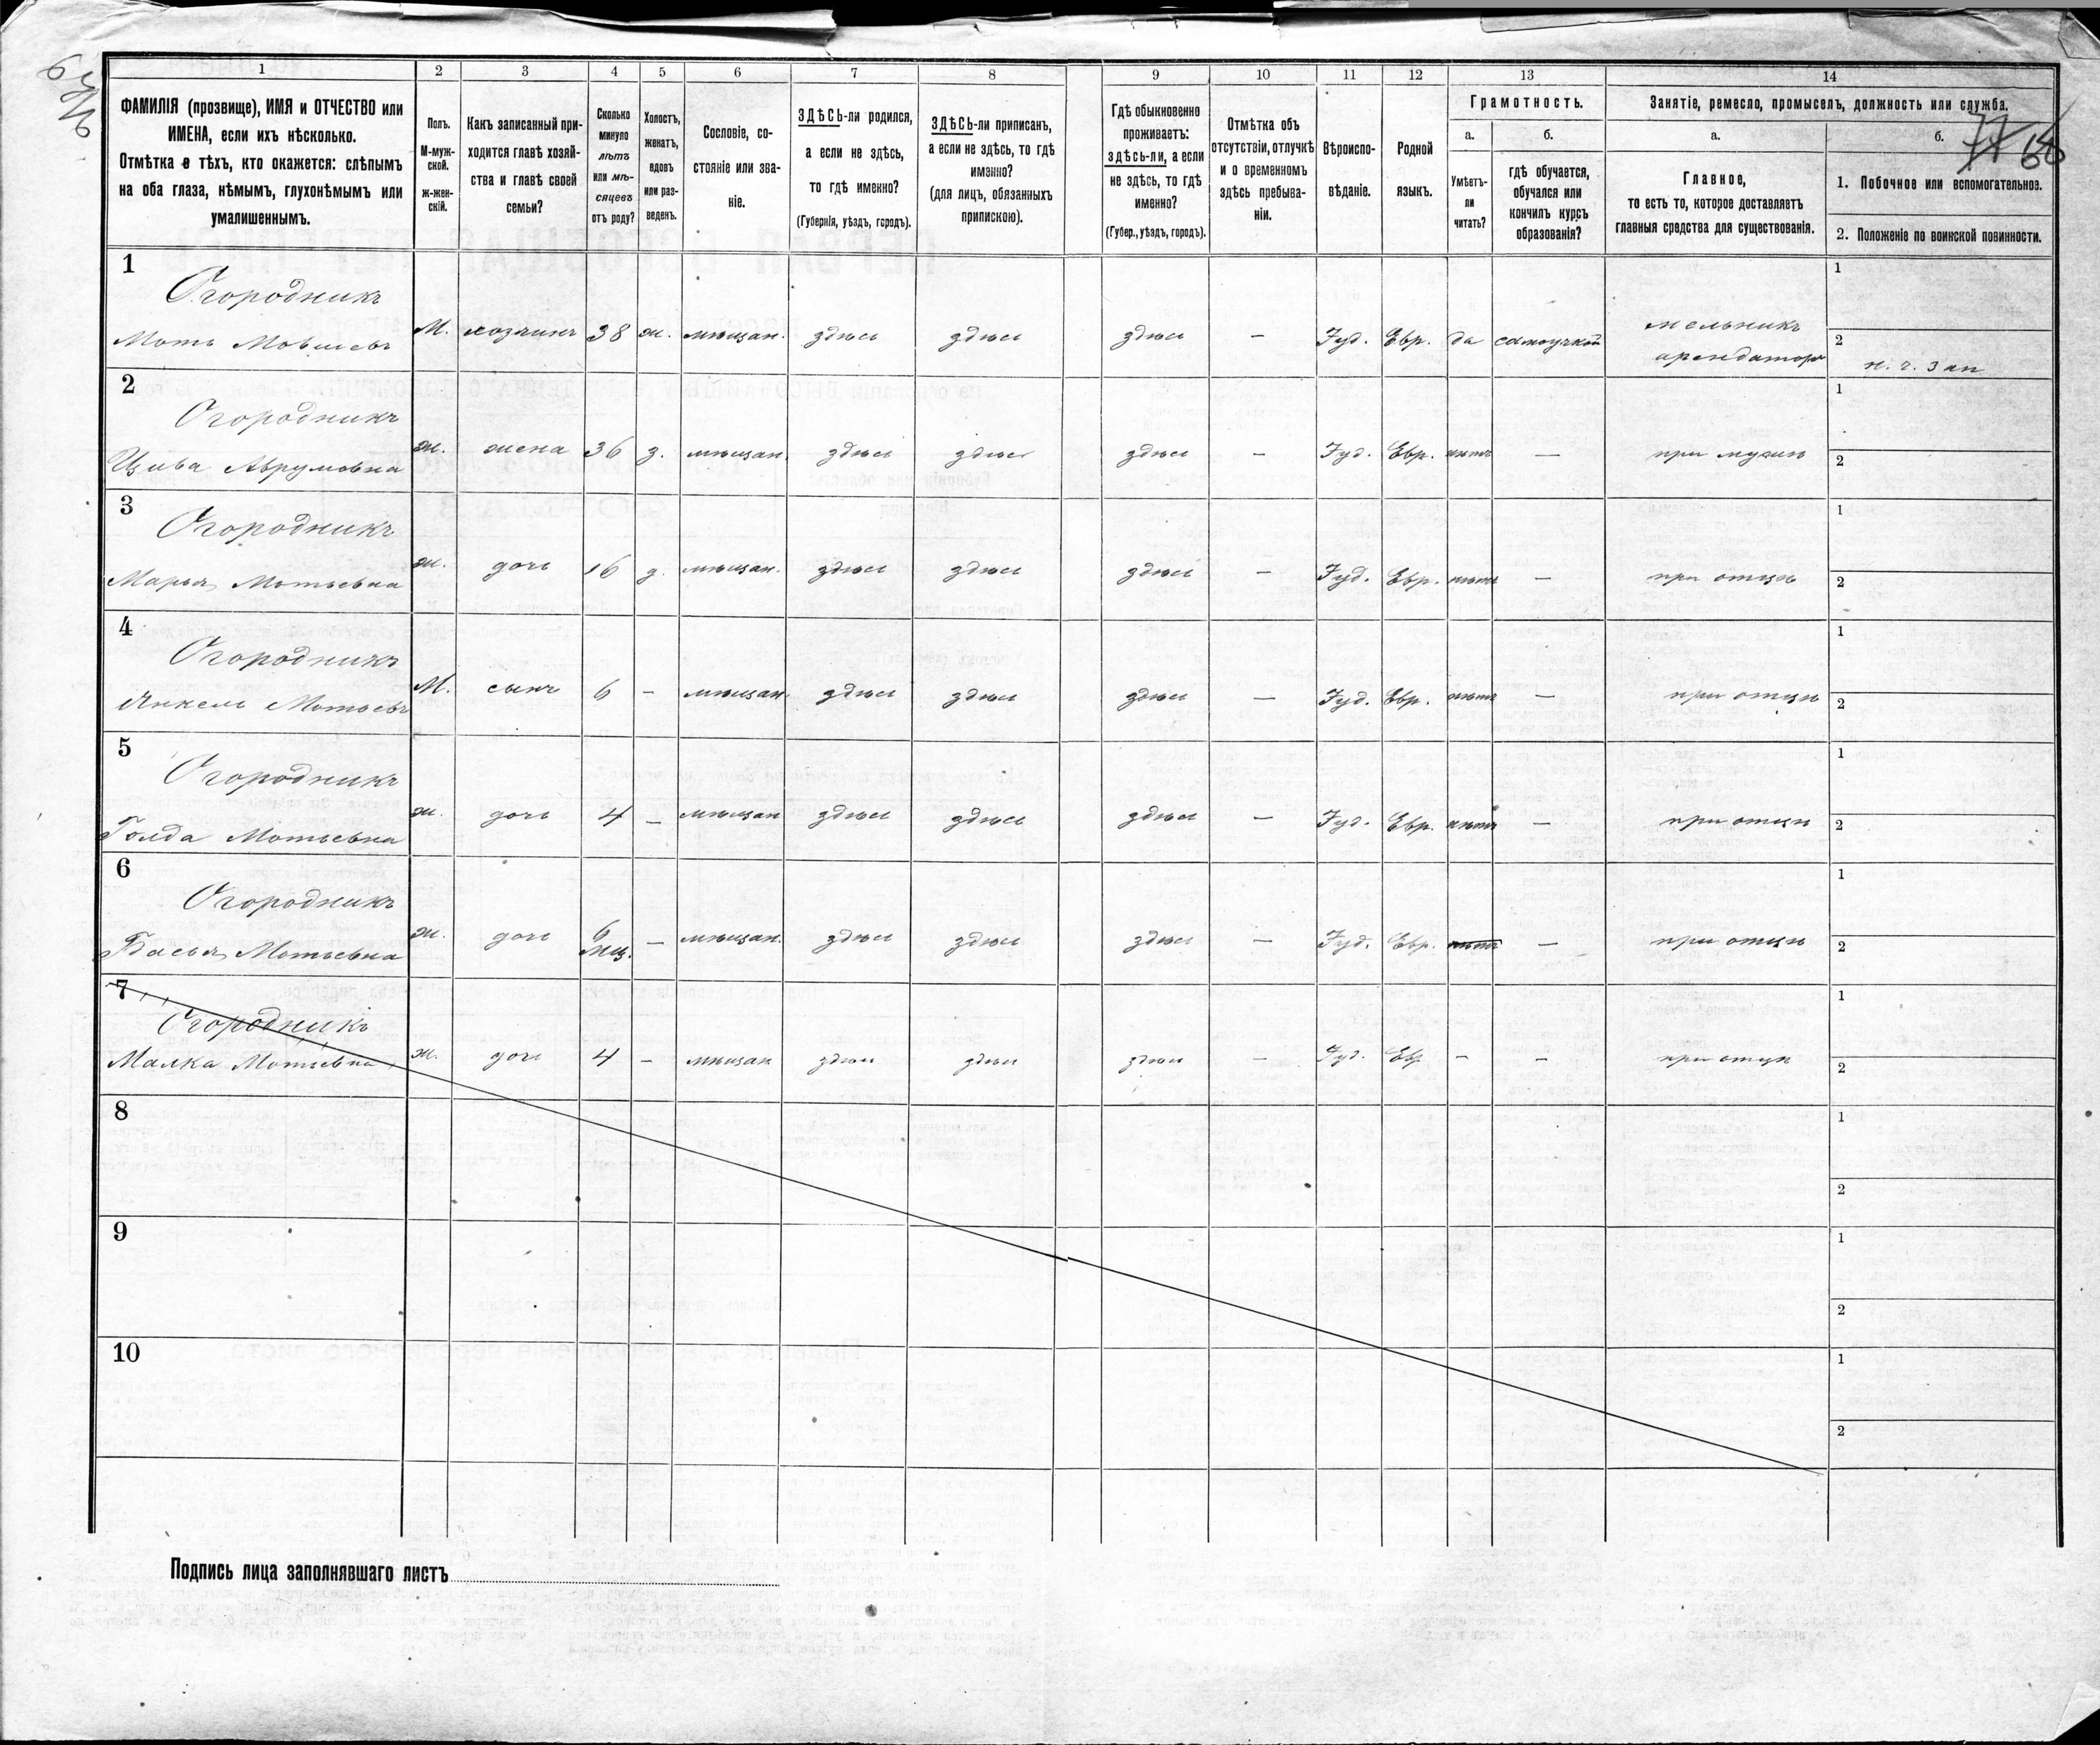 1 2 3 4 5 6 7 8 9 10 11 12 13 14
ФАМИЛІЯ (прозвище), ИМЯ и ОТЧЕСТВО или
ИМЕНА, если ихъ нѣсколько.
Отмѣтка о тѣхъ, кто окажется: слѣпымъ
на оба глаза, нѣмымъ, глухонѣмымъ или
умалишеннымъ.
Полъ.
М-муж-
ской.
ж-жен-
скій.
Какъ записанный при-
ходится главѣ хозяй-
ства и главѣ своей
семьи?
Сколько
минуло
лѣтъ
или мѣ-
сяцевъ
отъ роду?
Холостъ,
женатъ,
вдовъ
или раз-
веденъ.
Сословіе, со-
стояніе или зва-
ніе.
ЗДѢСЬ-ли родился,
а если не здѣсь,
то гдѣ именно?
(Губернія, уѣздъ, городъ).
ЗДѢСЬ-ли приписанъ,
а если не здѣсь, то гдѣ
именно?
(для лицъ, обязанныхъ
припискою).
Гдѣ обыкновенно
проживаетъ:
здѣсь-ли, а если
не здѣсь, то гдѣ
именно?
(Губер., уѣздъ, городъ).
Отмѣтка объ
отсутствіи, отлучкѣ
и о временномъ
здѣсь пребыва-
ніи.
Вѣроиспо-
вѣданіе.
Родной
языкъ.
Грамотность.
а. б.
Умѣетъ-
ли
читать?
гдѣ обучается,
обучался или
кончилъ курсъ
образованія?
Занятіе, ремесло, промыселъ, должность или служба.
а. б.
Главное,
то есть то, которое доставляетъ
главныя средства для существованія.
1. Побочное или вспомогательное.
2. Положеніе по воинской повинности.
1
Огородникъ
Моть Мовшевъ М. хозяинъ 38 ж. мѣщан. здѣсь здѣсь здѣсь — Іуд. Евр. да самоучкой мельникъ
арендаторъ
1
2 н. ч. зап
2
Огородникъ
Цива Аврумовна ж. жена 36 з. мѣщан. здѣсь здѣсь здѣсь — Іуд. Евр. нѣтъ — при мужѣ
1
2
3
Огородникъ
Марья Мотьевна ж. дочь 16 д. мѣщан. здѣсь здѣсь здѣсь — Іуд. Евр. нѣтъ — при отцѣ
1
2
4
Огородникъ
Янкель Мотьевъ М. сынъ 6 — мѣщан. здѣсь здѣсь здѣсь — Іуд. Евр. нѣтъ — при отцѣ
1
2
5
Огородникъ
Голда Мотьевна ж. дочь 4 — мѣщан здѣсь здѣсь здѣсь — Іуд. Евр. нѣтъ — при отцѣ
1
2
6
Огородникъ
Басья Мотьевна ж. дочь 6 мц. — мѣщан. здѣсь здѣсь здѣсь — Іуд. Евр. нѣтъ — при отцѣ
1
2
7
Огородникъ
Малка Мотьевна ж. дочь 4 — мѣщан здѣсь здѣсь здѣсь — Іуд. Евр — — при отцѣ
1
2
8
1
2
9
1
2
10
1
2
Подпись лица заполнявшаго листъ